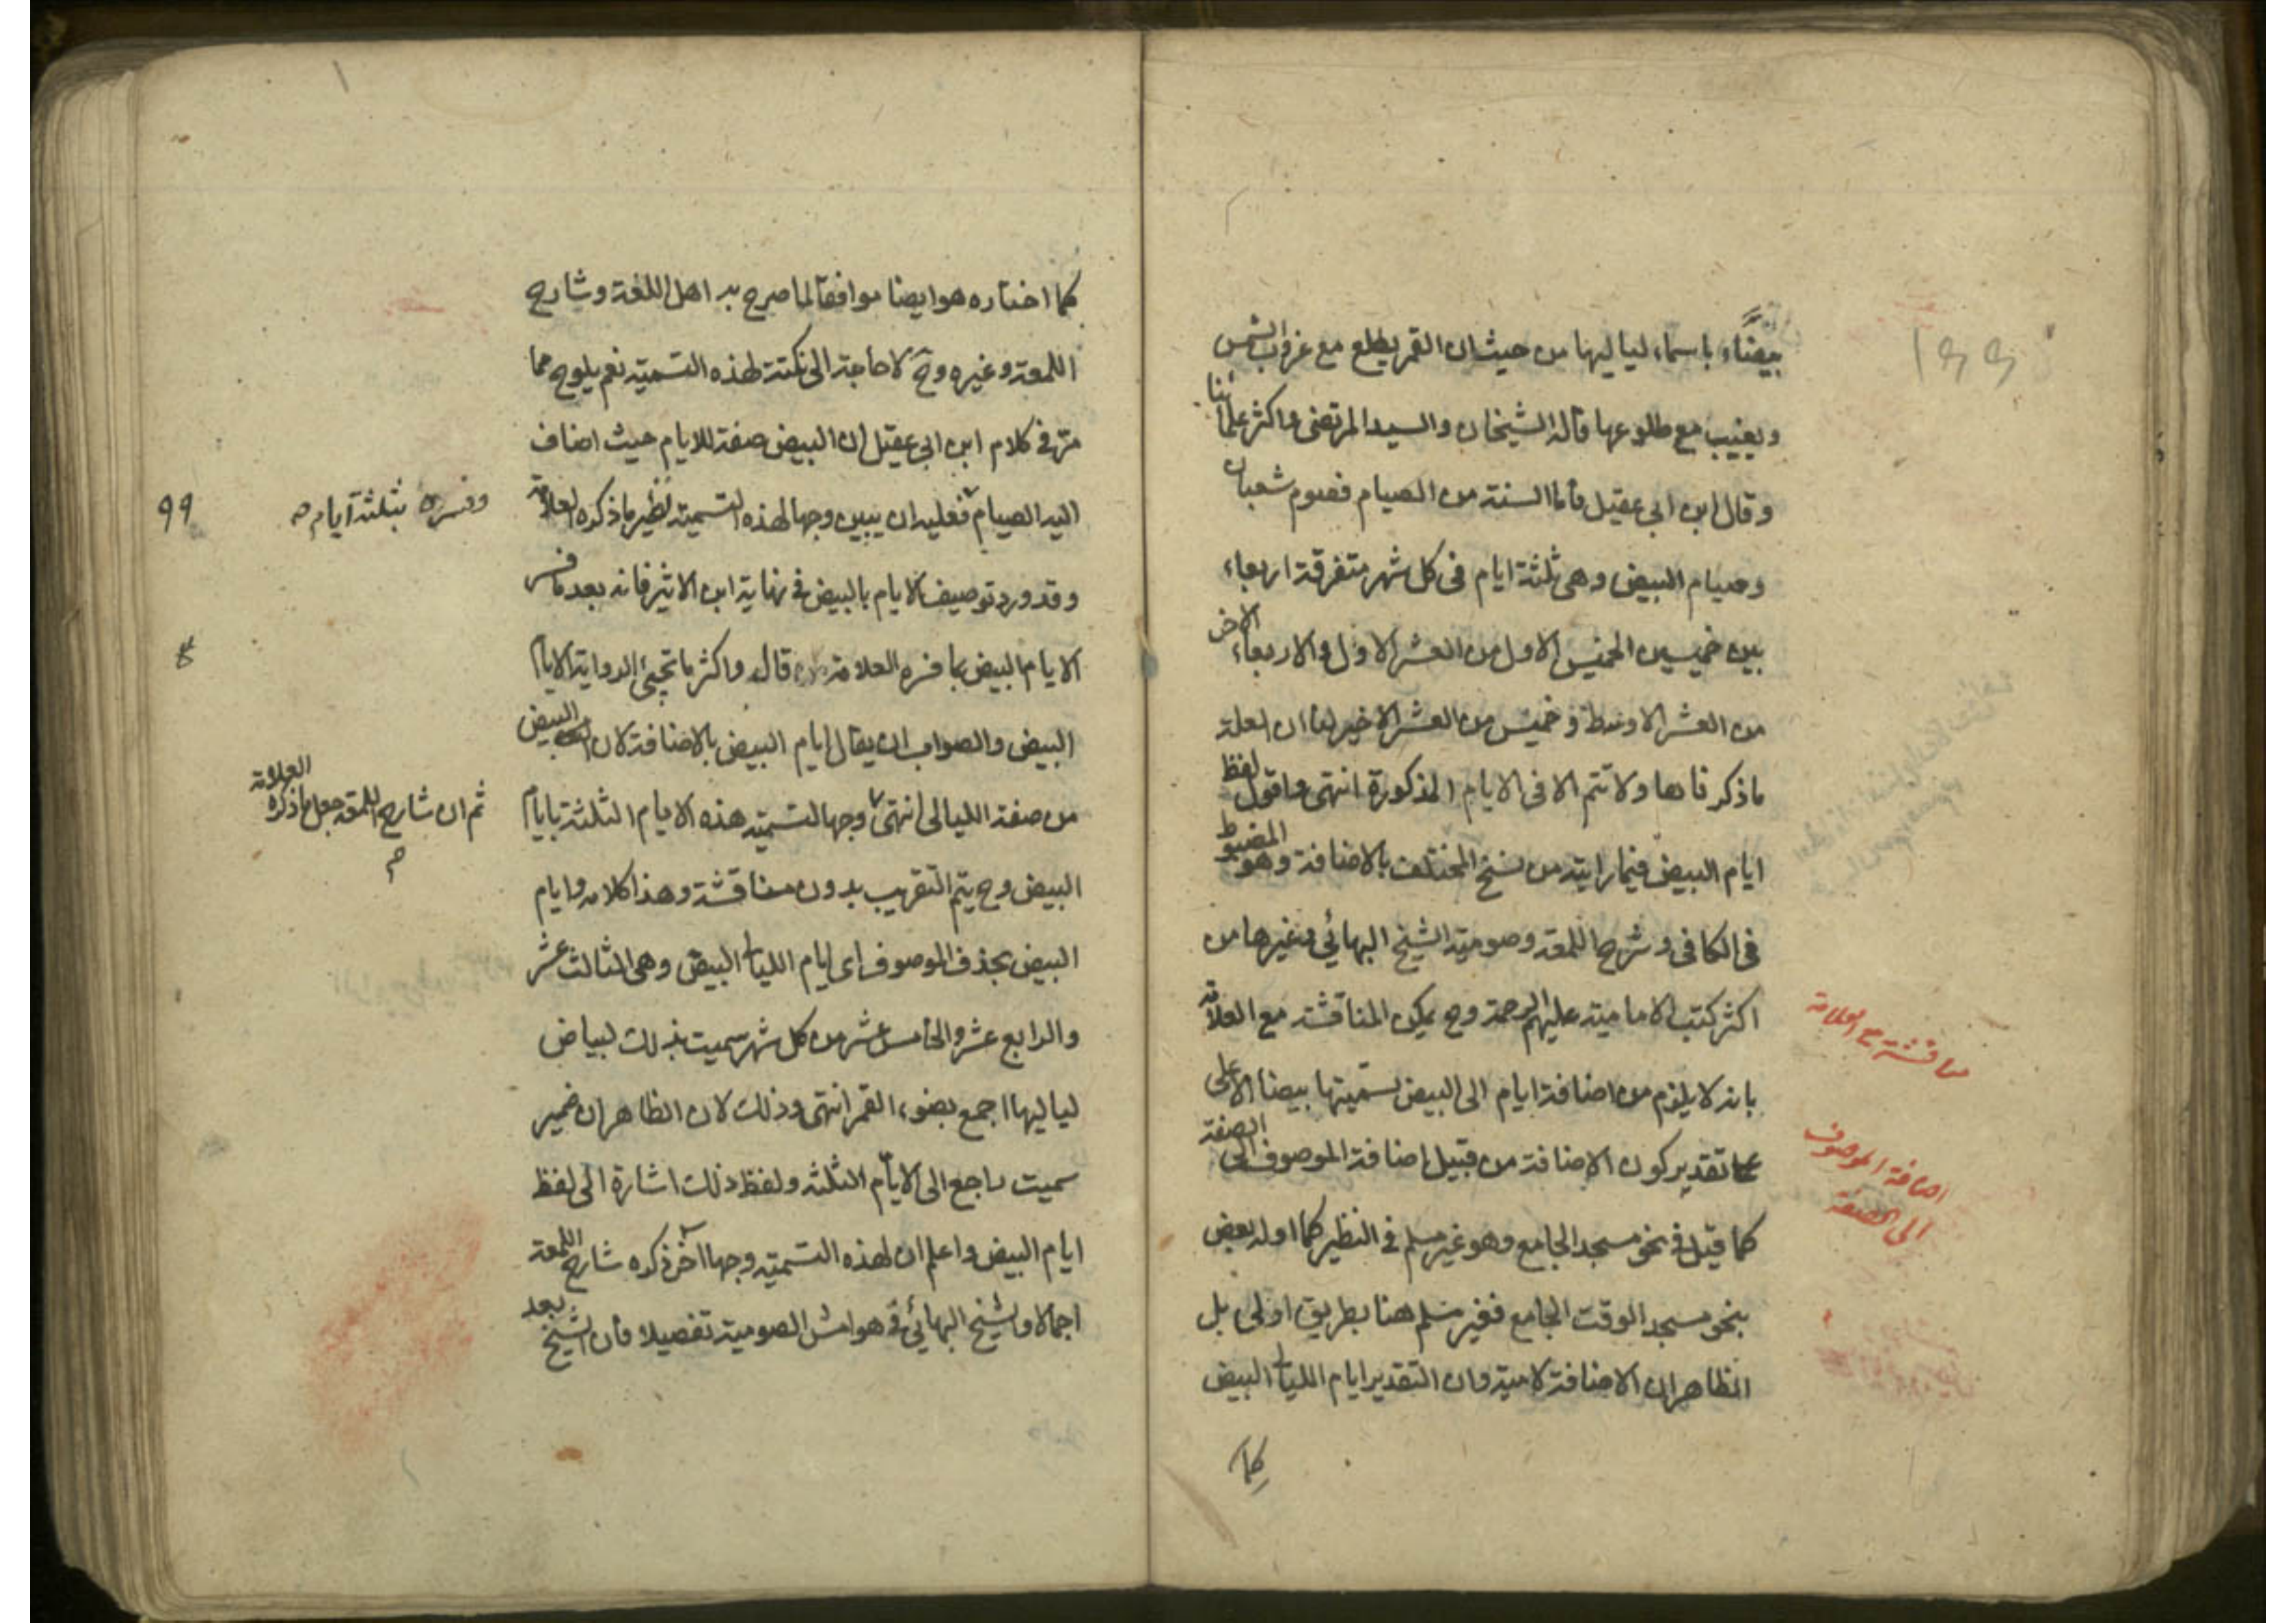 بيضاء باسماء لياليها من حيث ان القمر يطلع مع غروب الشمس
ويغيب مع طلوعها قاله الشيخان والسيد المرتضى واكثر علمائنا
وقال ابن ابي عقيل فاما السنة من الصيام فصوم شعبان
وصيام البيض وهى ثلثة ايام فى كل شهر متفرقة اربعاء
بين خميسين الخميس الاول من العشر الاول والاربعاء الاخر
من العشر الاوسط وخميس من العشر الاخير لنا ان العلة
ما ذكرناها ولا تتم الا فى الايام المذكورة انتهى واقول لفظ
ايام البيض فيما رايته من نسخ المختلف بالاضافة وهو المضبوط
فى الكافى وشرح اللمعة وصومية الشيخ البهائي وغيرها من
اكثر كتب الامامية عليهم الرحمة وح يمكن المناقشة مع العلامة
بانه لا يلزم من اضافة ايام الى البيض تسميتها بيضا الا على
تقدير كون الاضافة من قبيل اضافة الموصوف الى الصفة
كما قيل فى نحو مسجد الجامع وهو غير مسلم فى النظير كما اوله بعض
بنحو مسجد الوقت الجامع فغير مسلم هنا بطريق اولى بل
الظاهر ان الاضافة لامية وان التقدير ايام الليالى البيض
كما
مناقشة مع العلامة
اضافة الموصوف
الى الصفة
١٩٩
كما اختاره هو ايضا موافقا لما صرح به اهل اللغة وشارح
اللمعة وغيره وح لا حاجة الى نكتة لهذه التسمية نعم يلوح مما
مر فى كلام ابن ابي عقيل ان البيض صفة للايام حيث اضاف
اليه الصيام فعليه ان يبين وجها لهذه التسمية نظير ما ذكره العلامة
وقد ورد توصيف الايام بالبيض فى نهاية ابن الاثير فانه بعد ما فسر
الايام البيض بما فسره العلامة قال واكثر ما تجئ الرواية الايام
البيض والصواب ان يقال ايام البيض بالاضافة لان البيض
من صفة الليالى انتهى وجها لتسمية هذه الايام الثلثة بايام
البيض وح يتم التقريب بدون مناقشة وهذا كلامه وايام
البيض بحذف الموصوف اى ايام الليالى البيض وهى الثالث عشر
والرابع عشر والخامس عشر من كل شهر سميت بذلك لبياض
لياليها اجمع بضوء القمر انتهى وذلك لان الظاهر ان ضمير
سميت راجع الى الايام الثلثة ولفظ ذلك اشارة الى لفظ
ايام البيض واعلم ان لهذه التسمية وجها آخر ذكره شارح اللمعة
اجمالا والشيخ البهائي فى هوامش الصومية تفصيلا فان الشيخ بعد
وفسره بثلثة ايام
ثم ان شارح اللمعة جعل ما ذكره العلامة
99